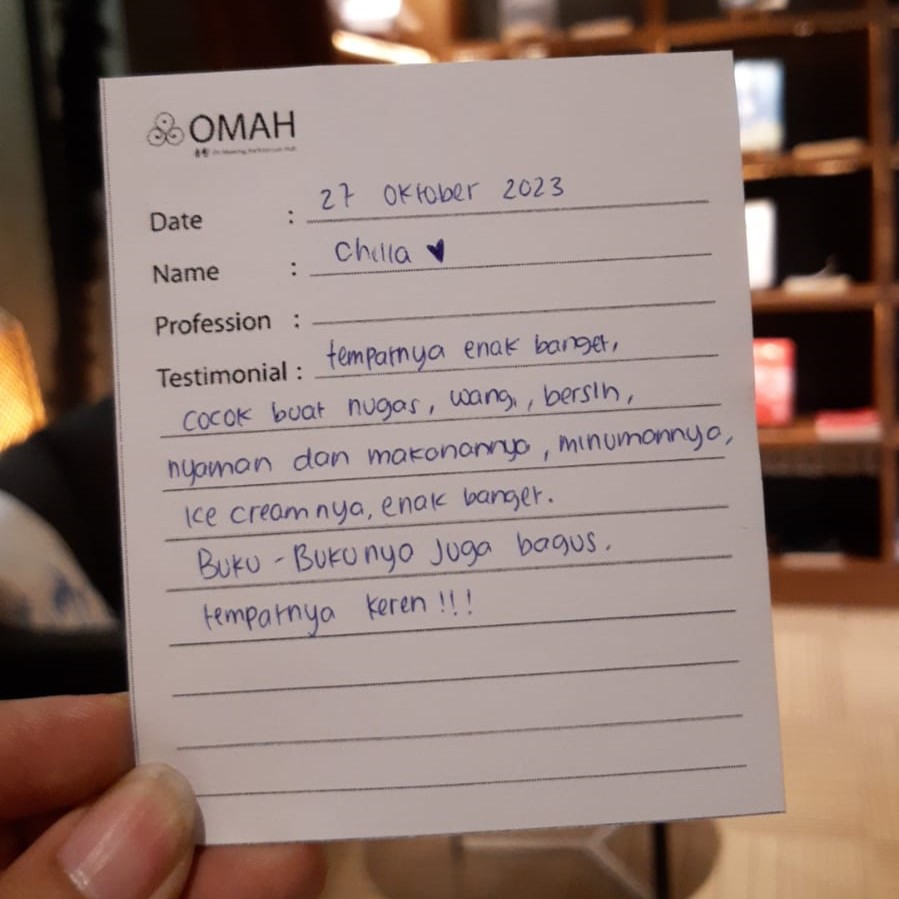 OMAH
Date : 27 Oktober 2023
Name : Chilla ♥
Profession :
Testimonial : tempatnya enak banget,
cocok buat nugas, wangi, bersih,
nyaman dan makanannya, minumannya,
Ice creamnya, enak banget.
Buku-Bukunya Juga bagus.
tempatnya keren!!!